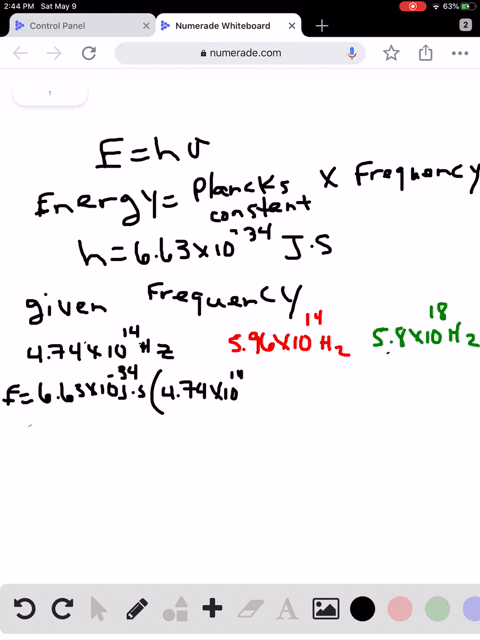 2:44 PM Sat May 9 63%
Control Panel × Numerade Whiteboard × + 2
numerade.com
1
E = hν
Energy = Plancks constant × Frequency
h = 6.63×10⁻³⁴ J·S
given Frequency
4.74×10¹⁴ Hz 5.96×10¹⁴ Hz 5.8×10¹⁸ Hz
E = 6.63×10⁻³⁴ J·s (4.74×10¹⁴
A